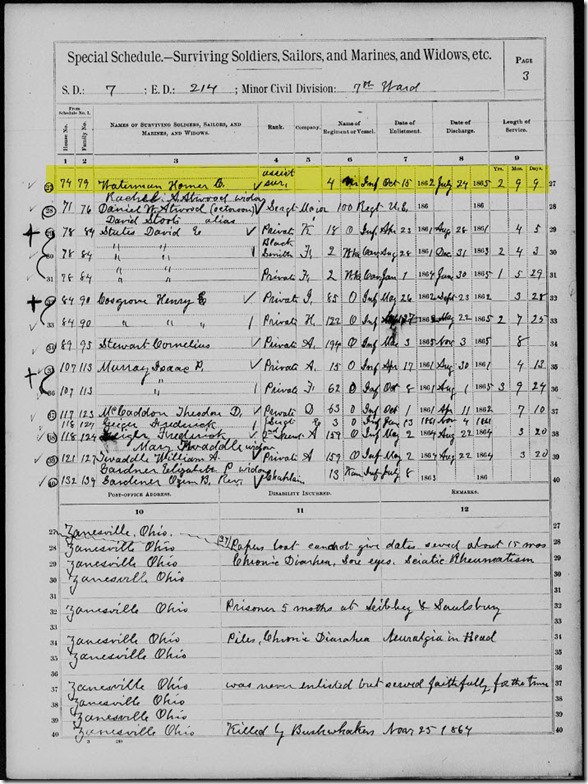 Special Schedule.—Surviving Soldiers, Sailors, and Marines, and Widows, etc.
PAGE 3
S. D.: 7 ; E. D.: 214 ; Minor Civil Division: 7th Ward
From Schedule No. 1.
House No. Family No. NAMES OF SURVIVING SOLDIERS, SAILORS, AND MARINES, AND WIDOWS. Rank. Company. Name of Regiment or Vessel. Date of Enlistment. Date of Discharge. Length of Service.
Yrs. Mos. Days.
1 2 3 4 5 6 7 8 9
27 74 79 Waterman Homer assist sur. 4 Inf Oct 15 1862 July 24 1865 2 9 9 27
Rachel Atwood widow
28 71 76 Daniel W. Atwood Sergt Major 100 Regt 186 186 28
David alias
29 78 84 States David E Private K 18 O Inf Apr 23 1861 Aug 28 1861 4 5 29
30 78 84 " " Black Smith F, 2 Cav Aug 28 1861 Dec 31 1863 2 4 3 30
31 78 84 " " Private F, 2 Cav Jan 1 1864 June 30 1865 1 5 29 31
32 84 90 Cosgrove Henry E Private I, 85 O Inf May 26 1862 Sept 23 1862 3 28 32
33 84 90 " " Private H, 122 O Inf May 22 1865 2 7 25 33
34 89 95 Stewart Cornelius Private A, 194 O Inf Mar 3 1865 Nov 3 1865 8 34
35 107 113 Murray Isaac P. Private A, 15 O Inf Apr 17 1861 Aug 30 1861 4 13 35
36 107 113 " Private F, 62 O Inf Oct 8 1861 Aug 1 1865 3 9 24 36
37 117 123 McCaddon Theodor D. Private D 63 O Inf Oct 1 1861 Apr 11 1862 7 10 37
118 124 Geiger Frederick Sergt 3 O Inf Jan 13 1861 Nov 4 1861
38 118 124 Geiger Frederick A 159 O Inf May 2 1864 Aug 22 1864 3 20 38
Mary Twaddle widow
39 121 127 Twaddle William A. Private A 159 O Inf May 2 1864 Aug 22 1864 3 20 39
Gardner Elizabeth P widow
40 132 139 Gardener B. Rev. Chaplain 13 Kan Inf July 8 186 186 40
POST-OFFICE ADDRESS. DISABILITY INCURRED. REMARKS.
10 11 12
27 Zanesville, Ohio. 27
28 Zanesville Ohio Papers lost cannot give dates served about 15 mos 28
29 Zanesville Ohio Chronic Diarhea, Sore eyes. Sciatic Rheumatism 29
30 Zanesville Ohio 30
31 31
32 Zanesville Ohio Prisoner 5 moths at Libbey & Saulsbury 32
33 33
34 Zanesville Ohio Piles, Chronic Diarahea Neuralgia in Head 34
35 Zanesville Ohio 35
36 36
37 Zanesville Ohio was never enlisted but served faithfully for the time 37
38 Zanesville Ohio 38
39 Zanesville Ohio 39
40 Zanesville Ohio Killed by Bushwhakers Novr 25 1864 40